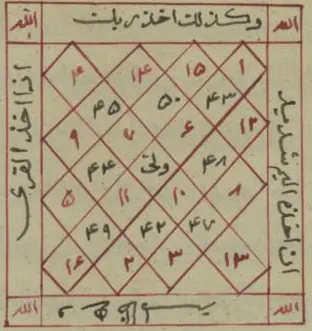 الله وكذلك اخذ ربك الله
۴ ۱۴ ۱۵ ۱
۴۵ ۵۰ ۴۳
۹ ۷ ۶ ۱۲
۴۴ ولى ۴۸
۵ ۱۱ ۱۰ ۸
۴۹ ۴۲ ۴۷
۱۶ ۲ ۳ ۱۳
اذا اخذ القرى
ان اخذه اليم شديد
الله الله